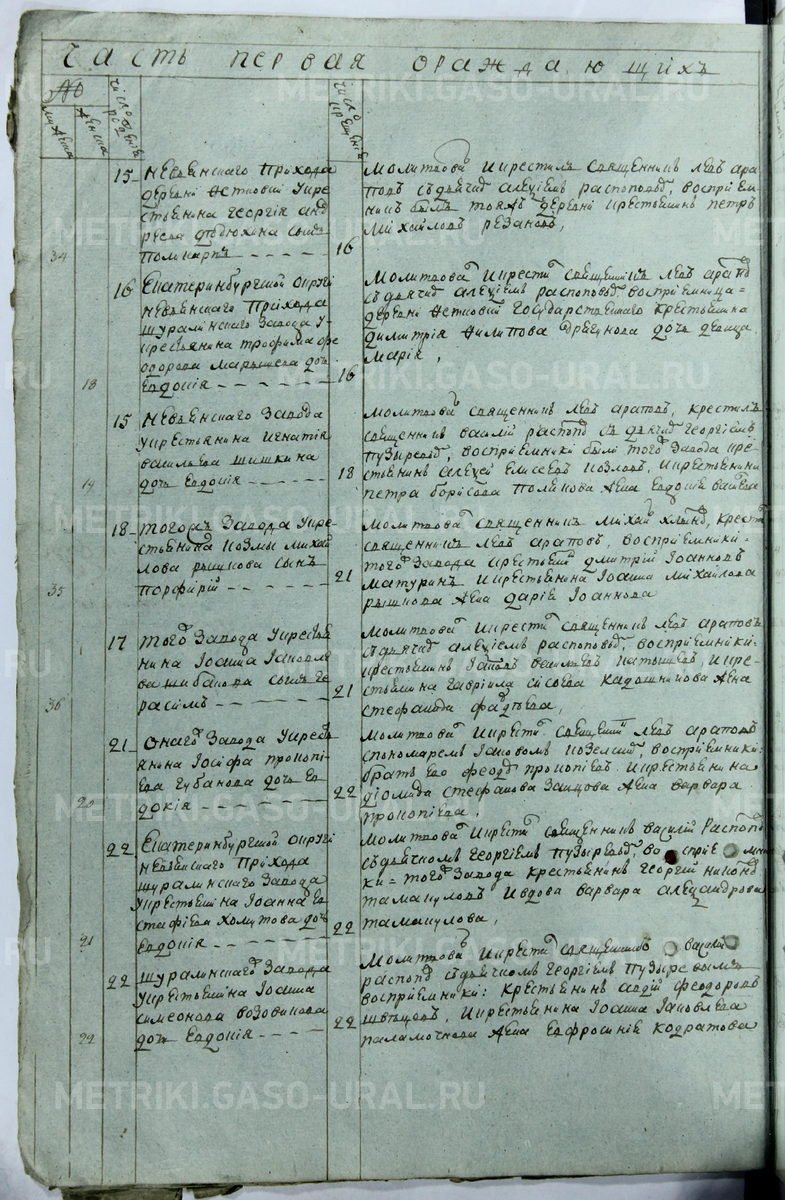 часть первая оражда.ющихъ
№
мужеска
женска
число рожденіе
число крещеніе
34
15
Невьянскаго Прихода
деревни
стьянина Георгія анд
реева сынъ
Поликарпъ
16
Молитвова и крестилъ священникъ левъ ара
повъ съ дьячко алеѯіемъ распоповы, воспріем
никъ былъ тояжъ деревни крестьянинъ петръ
Михайловъ резановъ,
18
16
Екатеринбургской округи
невьянскаго Прихода
шуралинскаго Завода у
крестьянина трофима фе
одорова дочь
Евдокія
16
Молитвова и крести священникъ левъ арапов
съ дьячко алеѯіемъ распоповы воспріемница
деревни государственнаго крестьянина
димитрія филипова дочь девица
Марія,
19
15
Невьянскаго Завода
у крестьянина игнатія
васильева шишкина
дочь Евдокія
18
Молитвова священникъ левъ араповъ, крестилъ
священникъ василій распопов съ дьячко георгіемъ
пузыревы, воспріемники были того Завода кре
стьянинъ алеѯей елисеевъ козловъ, и крестьянина
петра борисова полякова жена Евдокія
35
18
тогожъ Завода у кре
стьянина козмы михай
лова сынъ
порфирій
21
Молитвова священникъ михаи крести
священникъ левъ араповъ, воспріемники
того Завода крестьянинъ дмитрій Іоанновъ
матуринъ и крестьянина Іоанна михайлова
жена дарія Іоаннова
36
17
того Завода у крестья
нина Іоанна Іаковле
ва шибанова сынъ ге
расимъ
21
Молитвова и крести священникъ левъ араповъ
съ дьячко алеѯіемъ распоповы, воспріемники
крестьянинъ Іаковъ васильевъ и кре
стьянина гавріила сысоева кадошникова жена
стефанида фадѣева,
20
21
онаго Завода у кресть
янина Іосифа прокопі
ева губанова дочь ев
докія
22
Молитвова и крести священникъ левъ араповъ
спономаремъ Іаковомъ козельски, воспріемники
братъ его феодоръ прокопіевъ и крестьянина
діомида стефанова заицова жена варвара
прокопіева,
21
22
Екатеринбургской округи
невьянскаго Прихода
шуралинскаго Завода
у крестьянина Іоанна ев
стафіева хомутова дочь
Евдокія
22
Молитвова и крести священникъ василій распопов
съ дьячкомъ георгіемъ пузыревы, воспріемни
ки того Завода крестьянинъ георгій никонов
тамануловъ и вдова варвара алеѯандрова
таманулова,
22
22
шуралинскаго Завода
у крестьянина Іоанна
симеонова возовикова
дочь Евдокія
22
Молитвова и крести священникъ василій
распопов съ дьячкомъ георгіемъ пузыревымъ
воспріемники: крестьянинъ авдій феодоровъ
швецовъ, и крестьянина Іоанна Іаковлева
паламочнова жена Евфросинія кодратова
METRIKI.GASO-URAL.RU